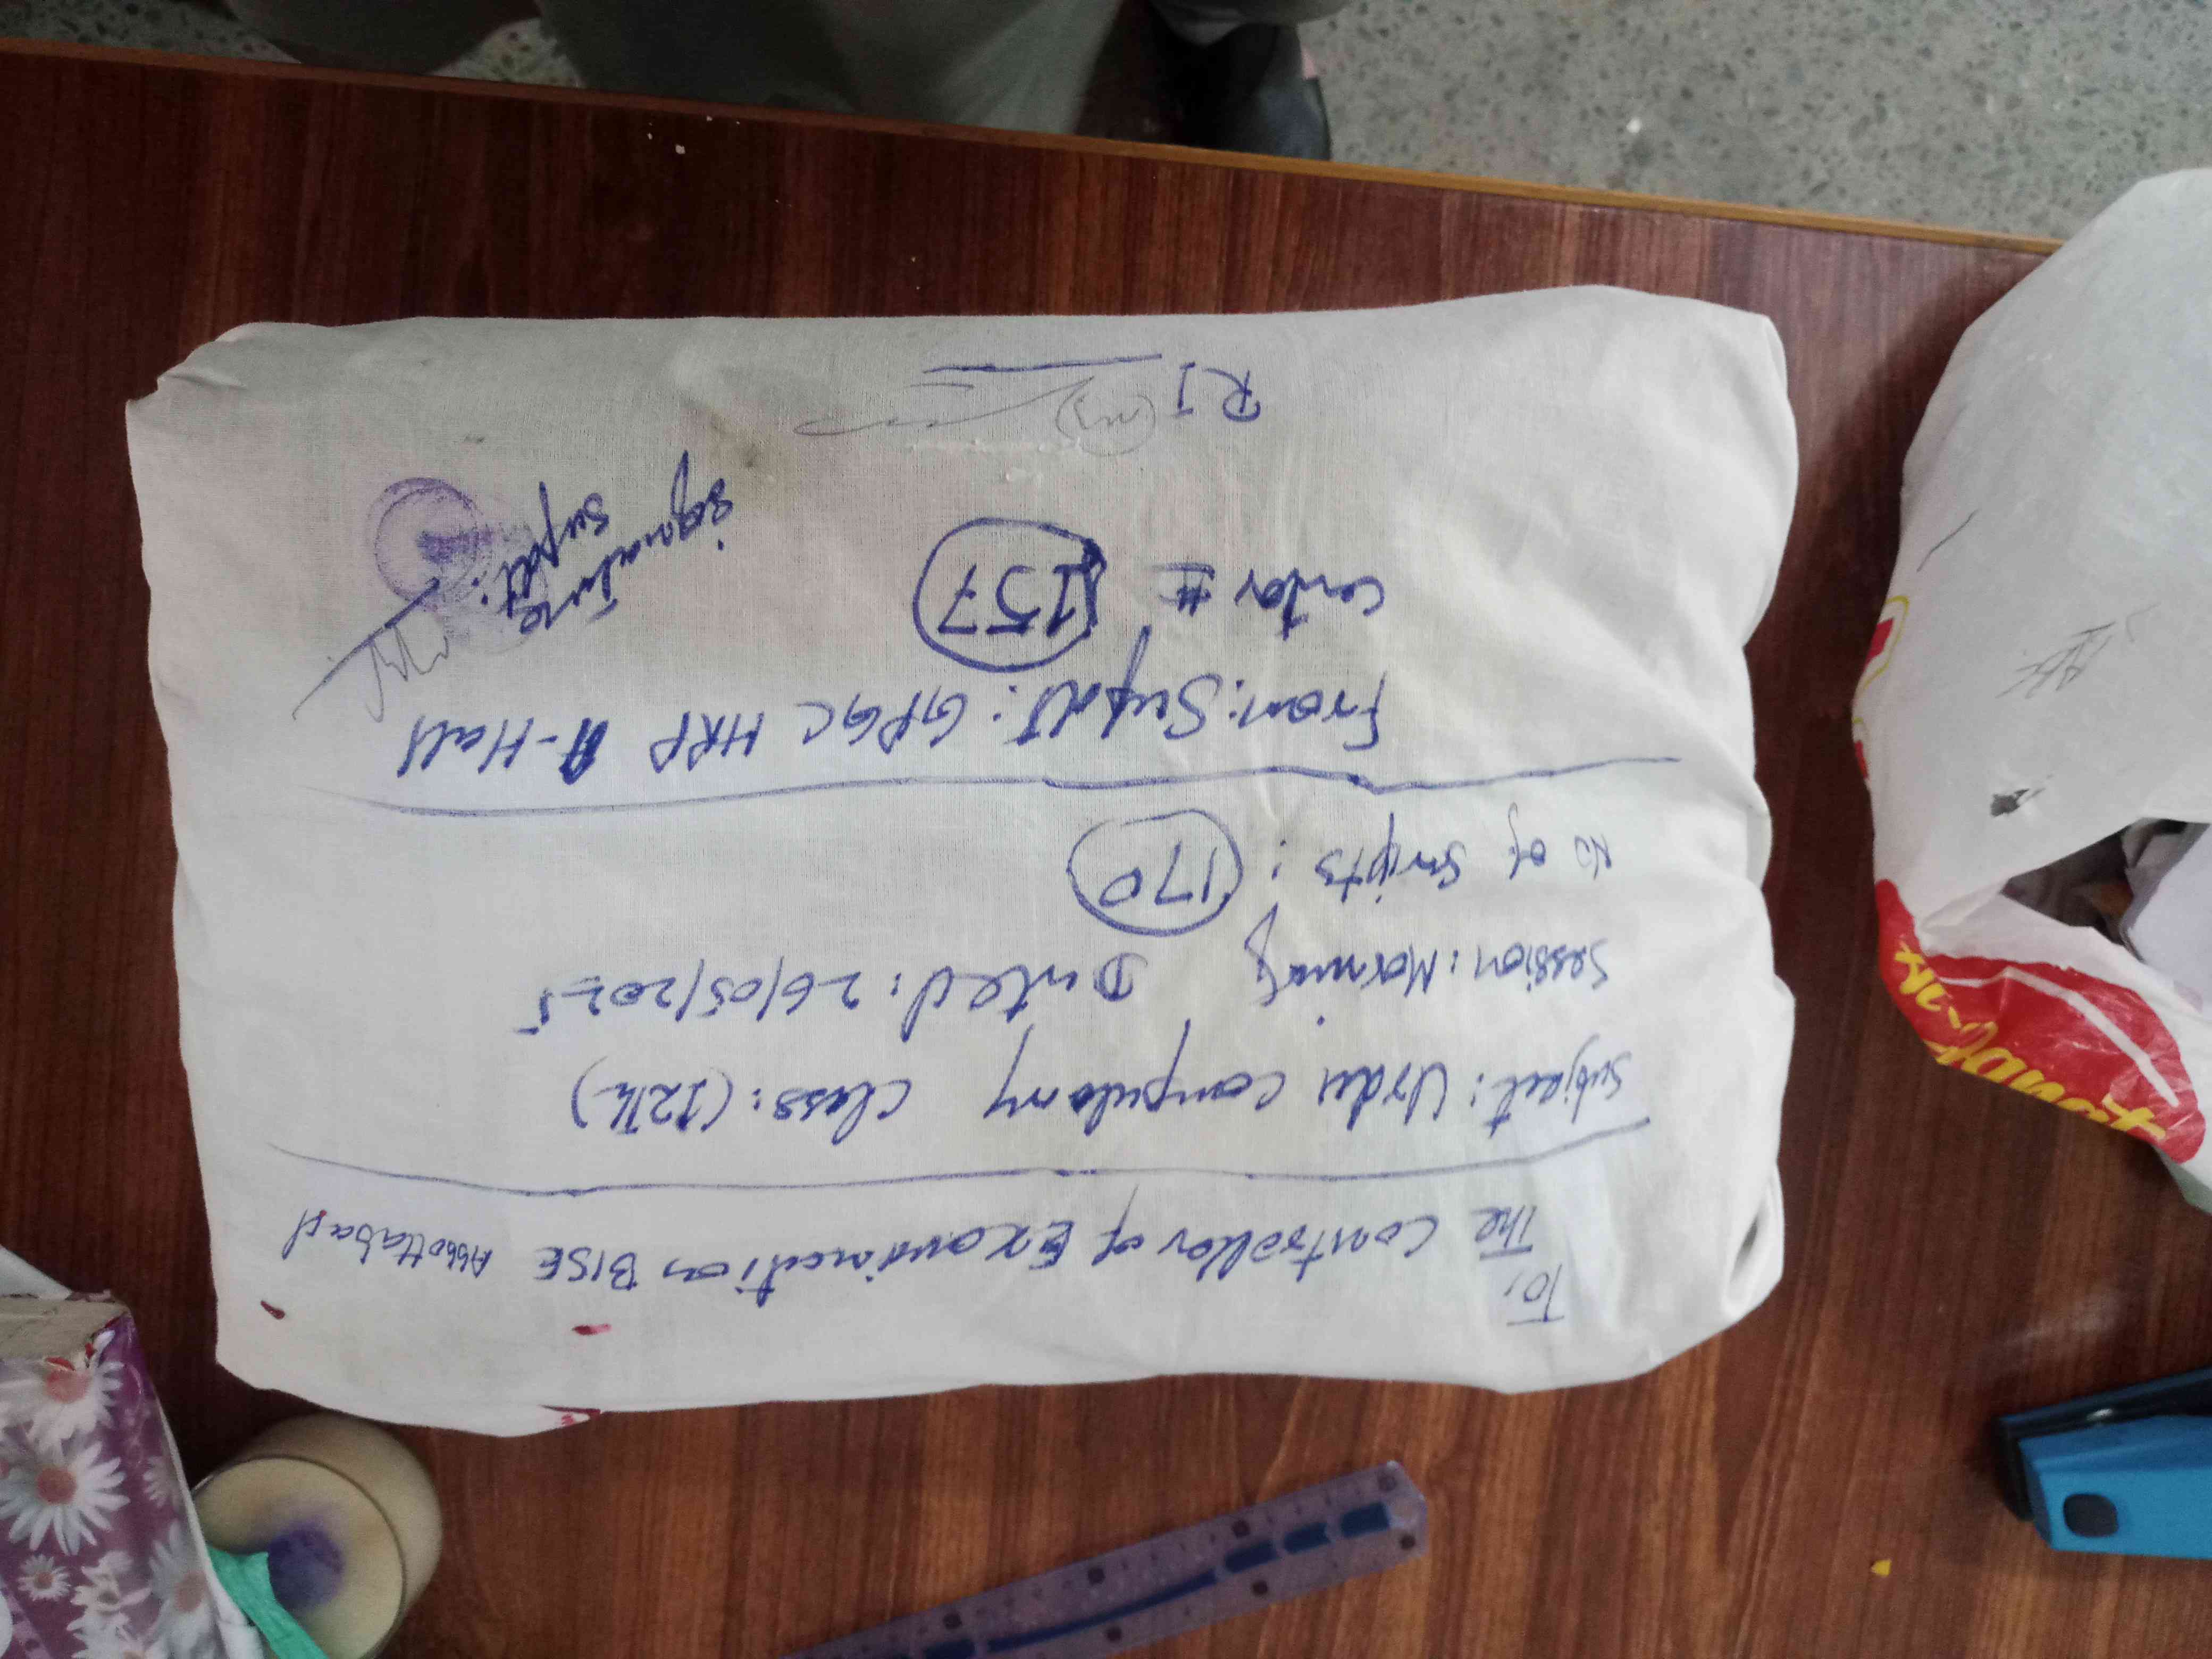 To,
The Controller of Examination BISE Abbottabad
Subject: Urdu Compulsory Class: (12th)
Session: Morning Dated: 26/05/2025
No of Scripts: 170
From: Supdt: GPGC HRP A-Hall
Center # 157
Signature
Supdt:
RI